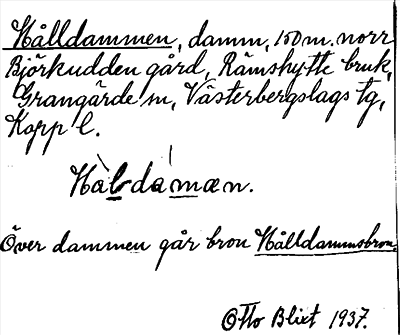 Hålldammen, damm, 150 m. norr
Björkudden gård, Rämshytte bruk,
Grangärde sn, Västerbergslags tg,
Kopp l.
Hàldámæn.
Över dammen går bron Hålldammsbron.
Otto Blixt 1937.